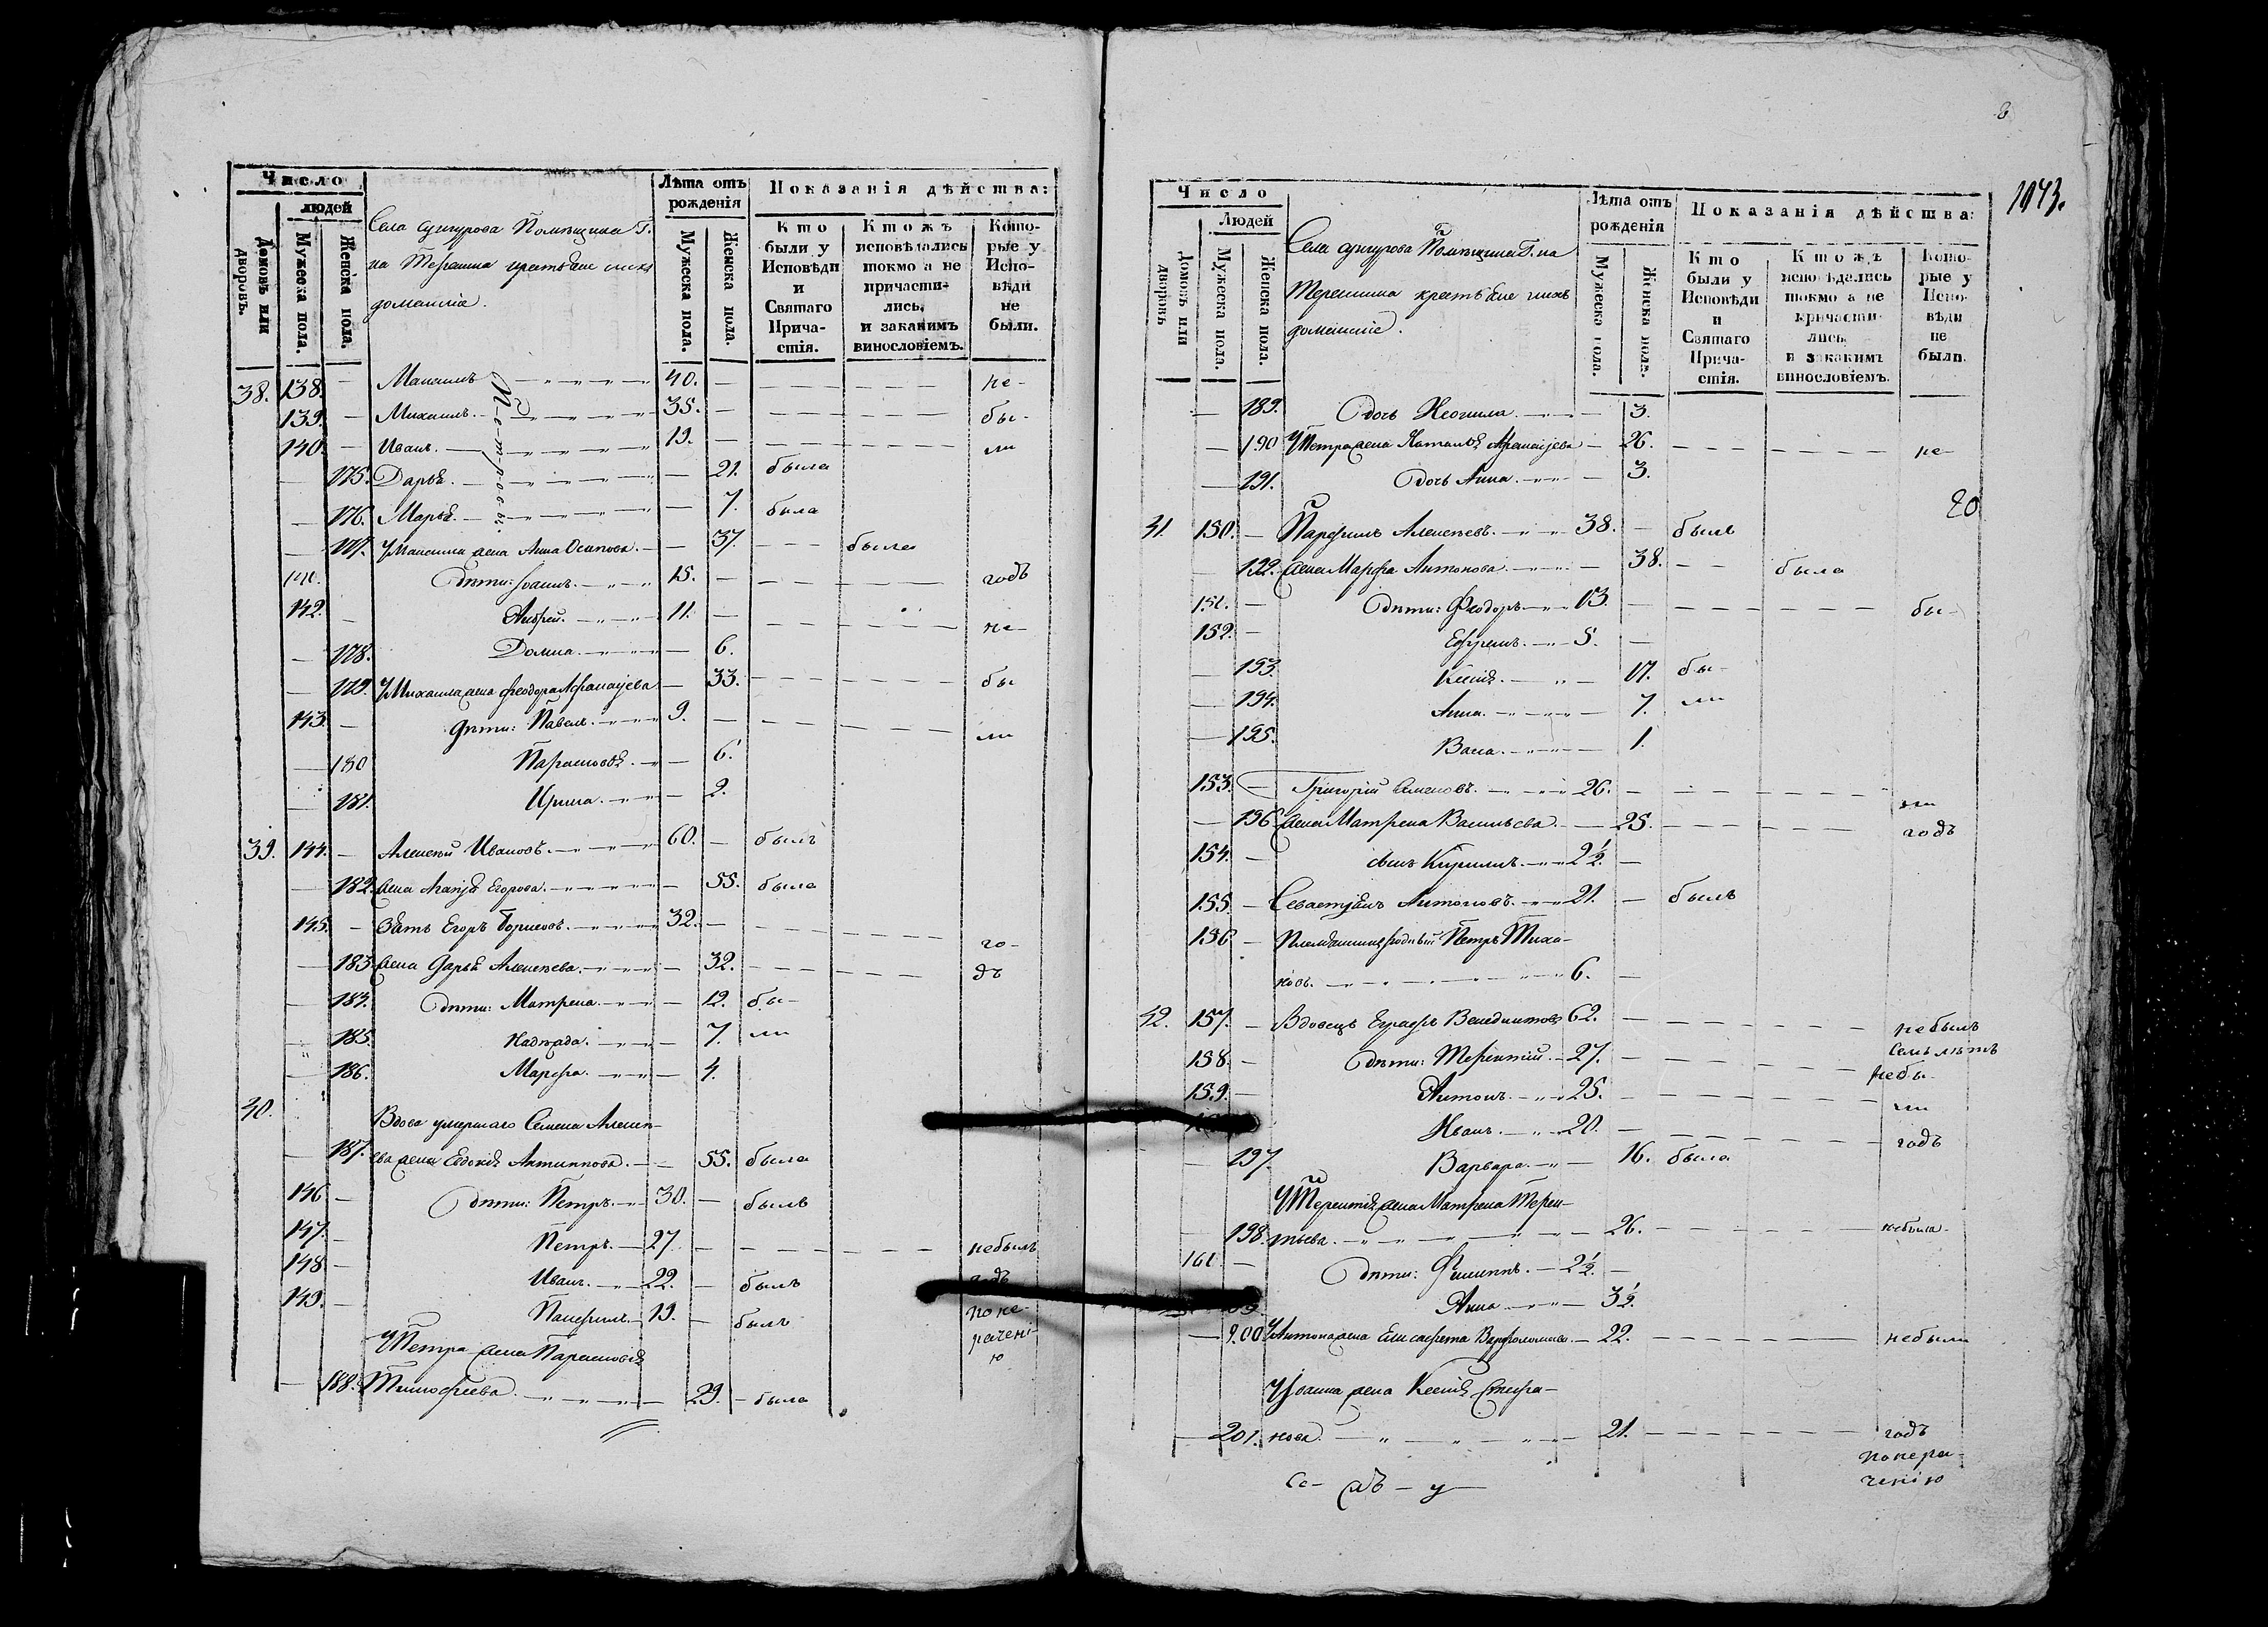 Число
людей
Домовъ или дворовъ.
Мужеска пола.
Женска пола.
Села Сунгурова Помѣщика Г.
на Терешина крестьяне и ихъ
домашніе.
Лѣта отъ рожденія
Мужеска пола.
Женска пола.
Показанія дѣйства:
Кто были у Исповѣди и Святаго Причастія.
Ктожъ исповѣдались токмо а не причастились, и закакимъ винословіемъ.
Которые у Исповѣди не были.
38. 138. — Максимъ 40. — не-
139. — Михаилъ 35. — бы-
140. — Иванъ. 19. — ли
П-е-т-р-о-в-ы.
— 175. Дарья. — 21. была
— 176. Марья. — 7. была
— 177. У Максима жена Анна Осипова. — 37. — была
141. дѣти: Іоаннъ. 15. — годъ
142. — Андрей. 11. — не-
— 178. Домна. — 6.
— 179. У Михаила жена Феодора Афанасьева — 33. — бы
143. — дѣти: Павелъ. 9. — ли
— 180 Парасковья. — 6.
— 181. Ирина. — 2.
39. 144. — Алексей Ивановъ. 60. — былъ
— 182. жена Агафья Егорова. — 55. была
145. — Зять Егоръ Борисовъ. 32. — го-
— 183. жена Дарья Алексеева. — 32. — дъ
— 184. дѣти: Матрена. — 12. бы-
— 185. Надежда. — 7. ли
— 186. Марфа. — 4.
40. Вдова умершаго Семена Алексе-
— 187. ева жена Евдокія Антиппова. — 55. была
146 — дѣти: Петръ. 30. — былъ
147. — Петръ. 27 — небылъ
148 — Иванъ. 22. — былъ годъ
149. — Панфилъ. 19. — былъ по не-
раченi-
ю
У Петра жена Парасковія
— 188. Тимофеева. — 29. — была
8
1043.
Число
Людей
Домовъ или дворовъ
Мужеска пола.
Женска пола.
Села Сунгурова Помѣщика Г. на
Терешина крестьяне и ихъ
домашніе.
Лѣта отъ рожденія
Мужеско пола.
Женска пола.
Показанія дѣйства:
Кто были у Исповѣди и Святаго Причастія.
Ктожъ исповѣдались токмо а не причастились, и закакимъ винословіемъ.
Которые у Исповѣди не были.
— 189. дочь Неонила. — 3.
— 190 У Петра жена Наталья Афанасьева — 26. — не-
— 191. дочь Анна. — 3.
20
41. 150. — Парфилъ Алексеевъ. 38. — былъ
— 192. жена Марфа Антонова. — 38. — была
151. — дѣти: Феодоръ 13. — бы-
152. — Ефремъ. 5. —
— 193. Ксенія. — 17. бы-
— 194. Анна. — 7. ли
— 195. Васса. — 1.
153. — Григорій Семеновъ. 26. — ли
— 196 жена Матрена Васильева. — 25. — годъ
154. — сынъ Кириллъ. 2½. —
155. — Севастьянъ Антоновъ. 21. — былъ
156 — Племянникъ родный Петръ Тихо-
новъ. 6. —
42. 157. — Вдовецъ Евграфъ Венедиктовъ 62. — небылъ
семь лѣтъ
158. — дѣти: Терентій. 27. — небы-
159. — Антонъ. 25. — ли
Иванъ. 20. — годъ
— 197. Варвара. — 16. была
У Терентія жена Матрена Терен-
— 198. тьева. — 26. — небыла
161. — дѣти: Филиппъ. 2½. —
Анна — 3½.
— 200 У Антона жена Елисавета Варфоломеева. — 22. — небыла
У Іоанна жена Ксенія Стефа-
— 201. нова. — 21. — годъ
по нера-
ченію